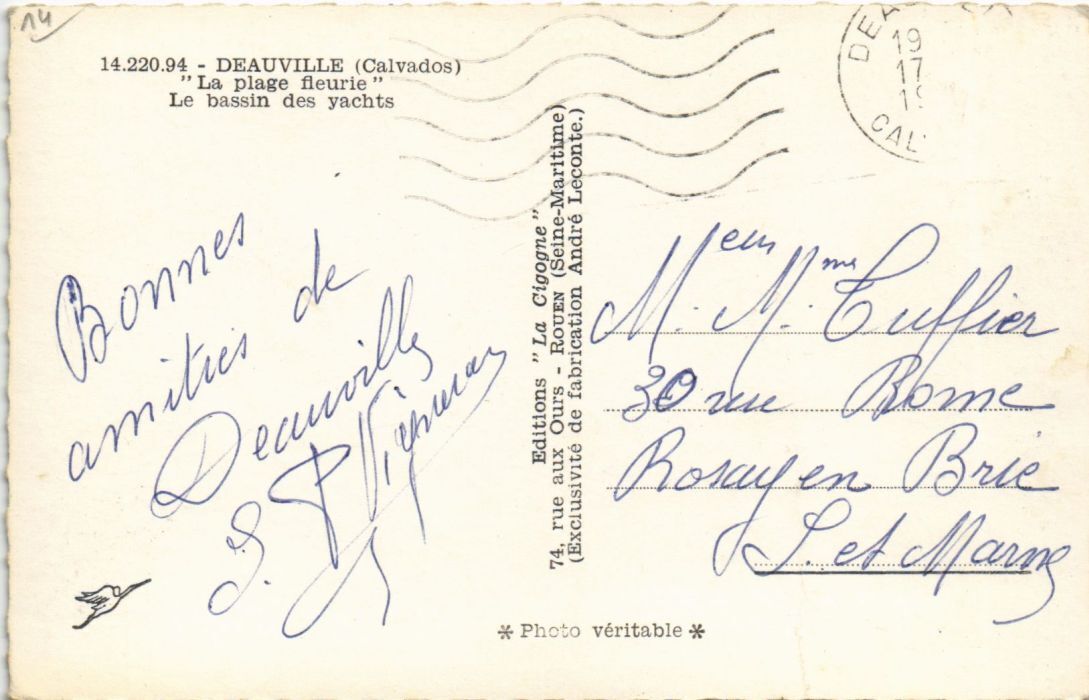 14
14.220.94 - DEAUVILLE (Calvados)
"La plage fleurie"
Le bassin des yachts
19
17
CAL
Bonnes
amitiés de
Deauville
Editions "La Cigogne"
74, rue aux Ours - ROUEN (Seine-Maritime)
(Exclusivité de fabrication André Leconte.)
M. M.me Tuffier
30 rue Rome
Rosay en Brie
S. et Marne
* Photo véritable *